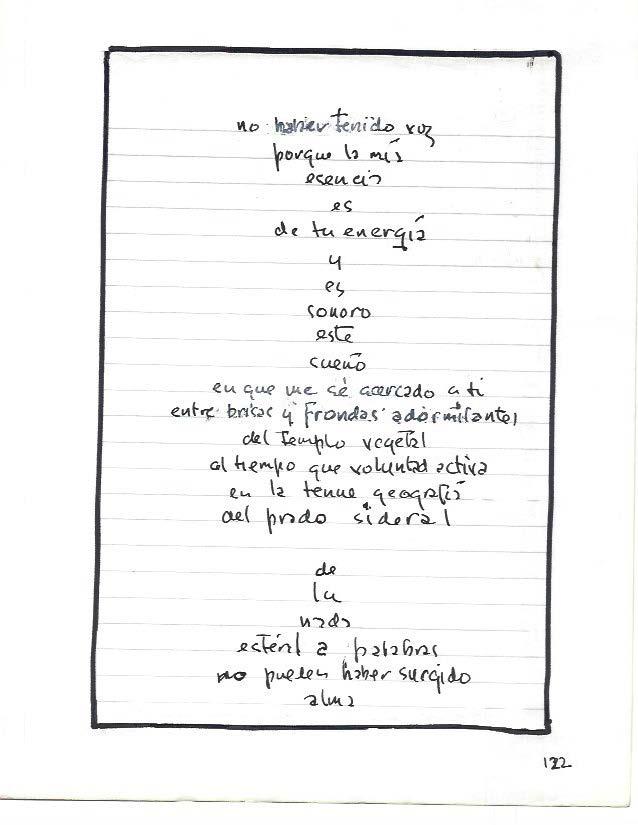 no haber tenido voz
porque la más
esencia
es
de tu energía
y
es
sonoro
este
sueño
en que me sé acercado a ti
entre brisas y frondas adormilantes
del templo vegetal
al tiempo que voluntad activa
en la tenue geografía
del prado sideral
de
la
nada
estéril a palabras
no pueden haber surgido
alma
122